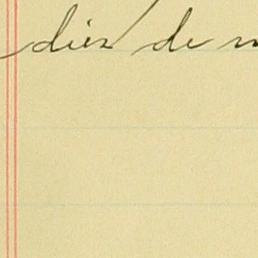 diez de